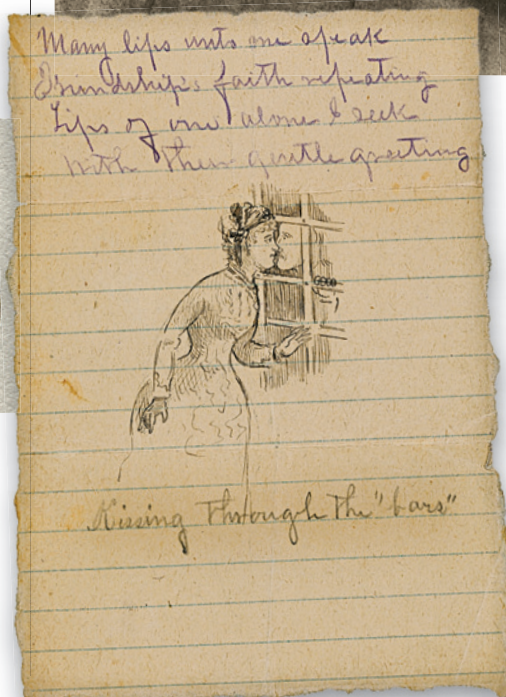 Many lips unto me speak
Friendship's faith repeating
Lips of one alone I seek
With their gentle greeting
Kissing Through The "bars"